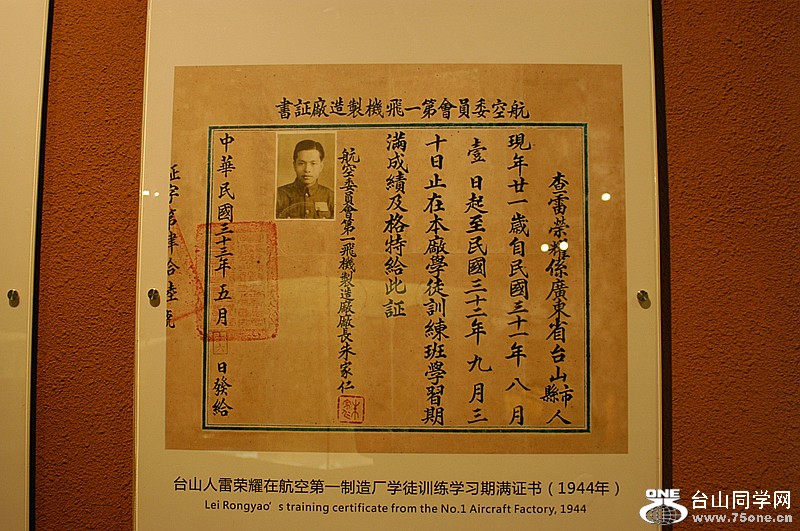 航空委員會第一飛機製造廠証書
查雷榮耀係廣東省台山市縣人
現年廿一歲自民國三十一年八月
壹日起至民國三十二年九月三
十日止在本廠學徒訓練班學習期
滿成績及格特給此証
航空委員會第一飛機製造廠廠長朱家仁
中華民國三十三年五月
日發給
証字第肆拾陸號
台山人雷荣耀在航空第一制造厂学徒训练学习期满证书（1944年）
Lei Rongyao's training certificate from the No.1 Aircraft Factory, 1944
ONE
台山同学网
www.75one.cn